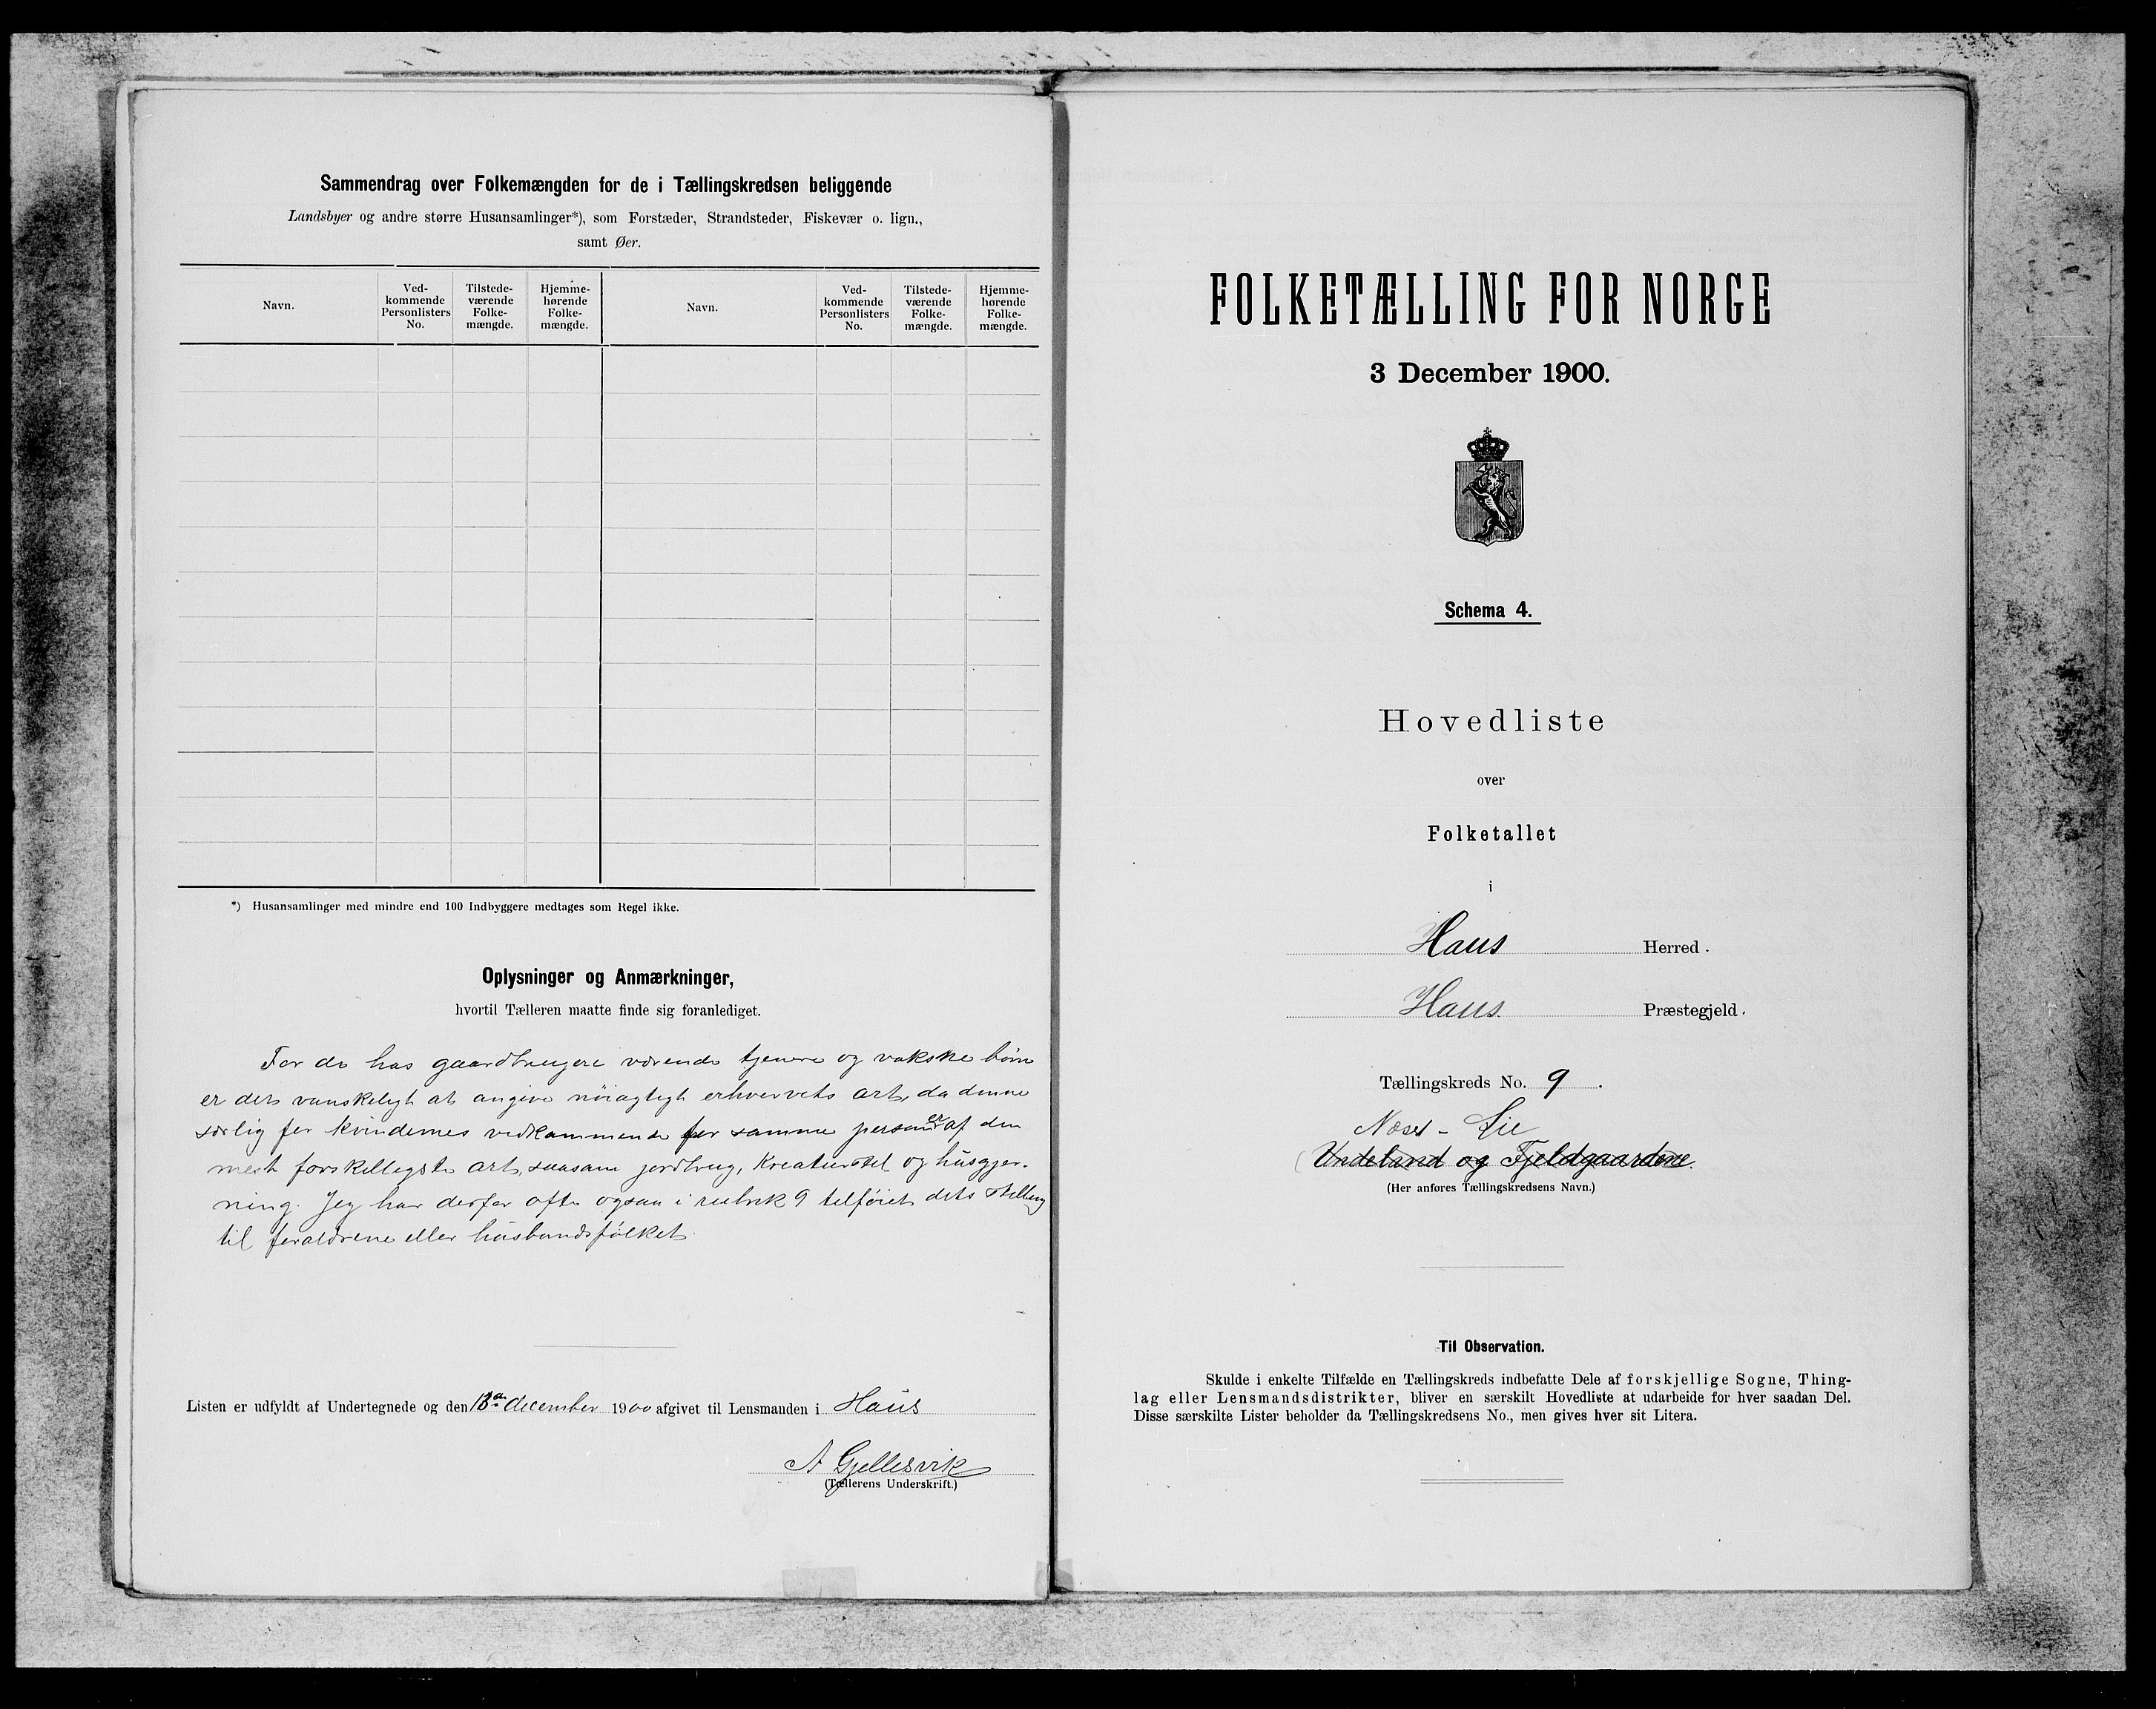 Sammendrag over Folkemængden for de i Tællingskredsen beliggende
Landsbyer og andre større Husansamlinger*), som Forstæder, Strandsteder, Fiskevær o. lign.,
samt Øer.
Navn.
Ved-
kommende
Personlisters
No.
Tilstede-
værende
Folke-
mængde.
Hjemme-
hørende
Folke-
mængde.
Navn.
Ved-
kommende
Personlisters
No.
Tilstede-
værende
Folke-
mængde.
Hjemme-
hørende
Folke-
mængde.
*) Husansamlinger med mindre end 100 Indbyggere medtages som Regel ikke.
Oplysninger og Anmærkninger,
hvortil Tælleren maatte finde sig foranlediget.
For de hos gaardbrugere værende tjenere og vokske børn
er det vanskeligt at angive nöiagtigt erhvervets art, da denne
særlig for kvindernes vedkommende for samme personer af den
mest forskelligste art, saasom jordbrug, kreaturstel og husgjer-
ning. Jeg har derfor ofte ogsaa i rubrik 9 tilföiet dets stilling
til forældrene eller husbondsfolket.
Listen er udfyldt af Undertegnede og den 13de december 1900 afgivet til Lensmanden i Haus
A Gjellesvik
(Tællerens Underskrift.)
FOLKETÆLLING FOR NORGE
3 December 1900.
Schema 4.
Hovedliste
over
Folketallet
i
Haus Herred.
Haus Præstegjeld.
Tællingskreds No. 9.
Næset - Lie
(Undeland og Fjeldgaardene.
(Her anføres Tællingskredsens Navn.)
Til Observation.
Skulde i enkelte Tilfælde en Tællingskreds indbefatte Dele af forskjellige Sogne, Thing-
lag eller Lensmandsdistrikter, bliver en særskilt Hovedliste at udarbeide for hver saadan Del.
Disse særskilte Lister beholder da Tællingskredsens No., men gives hver sit Litera.